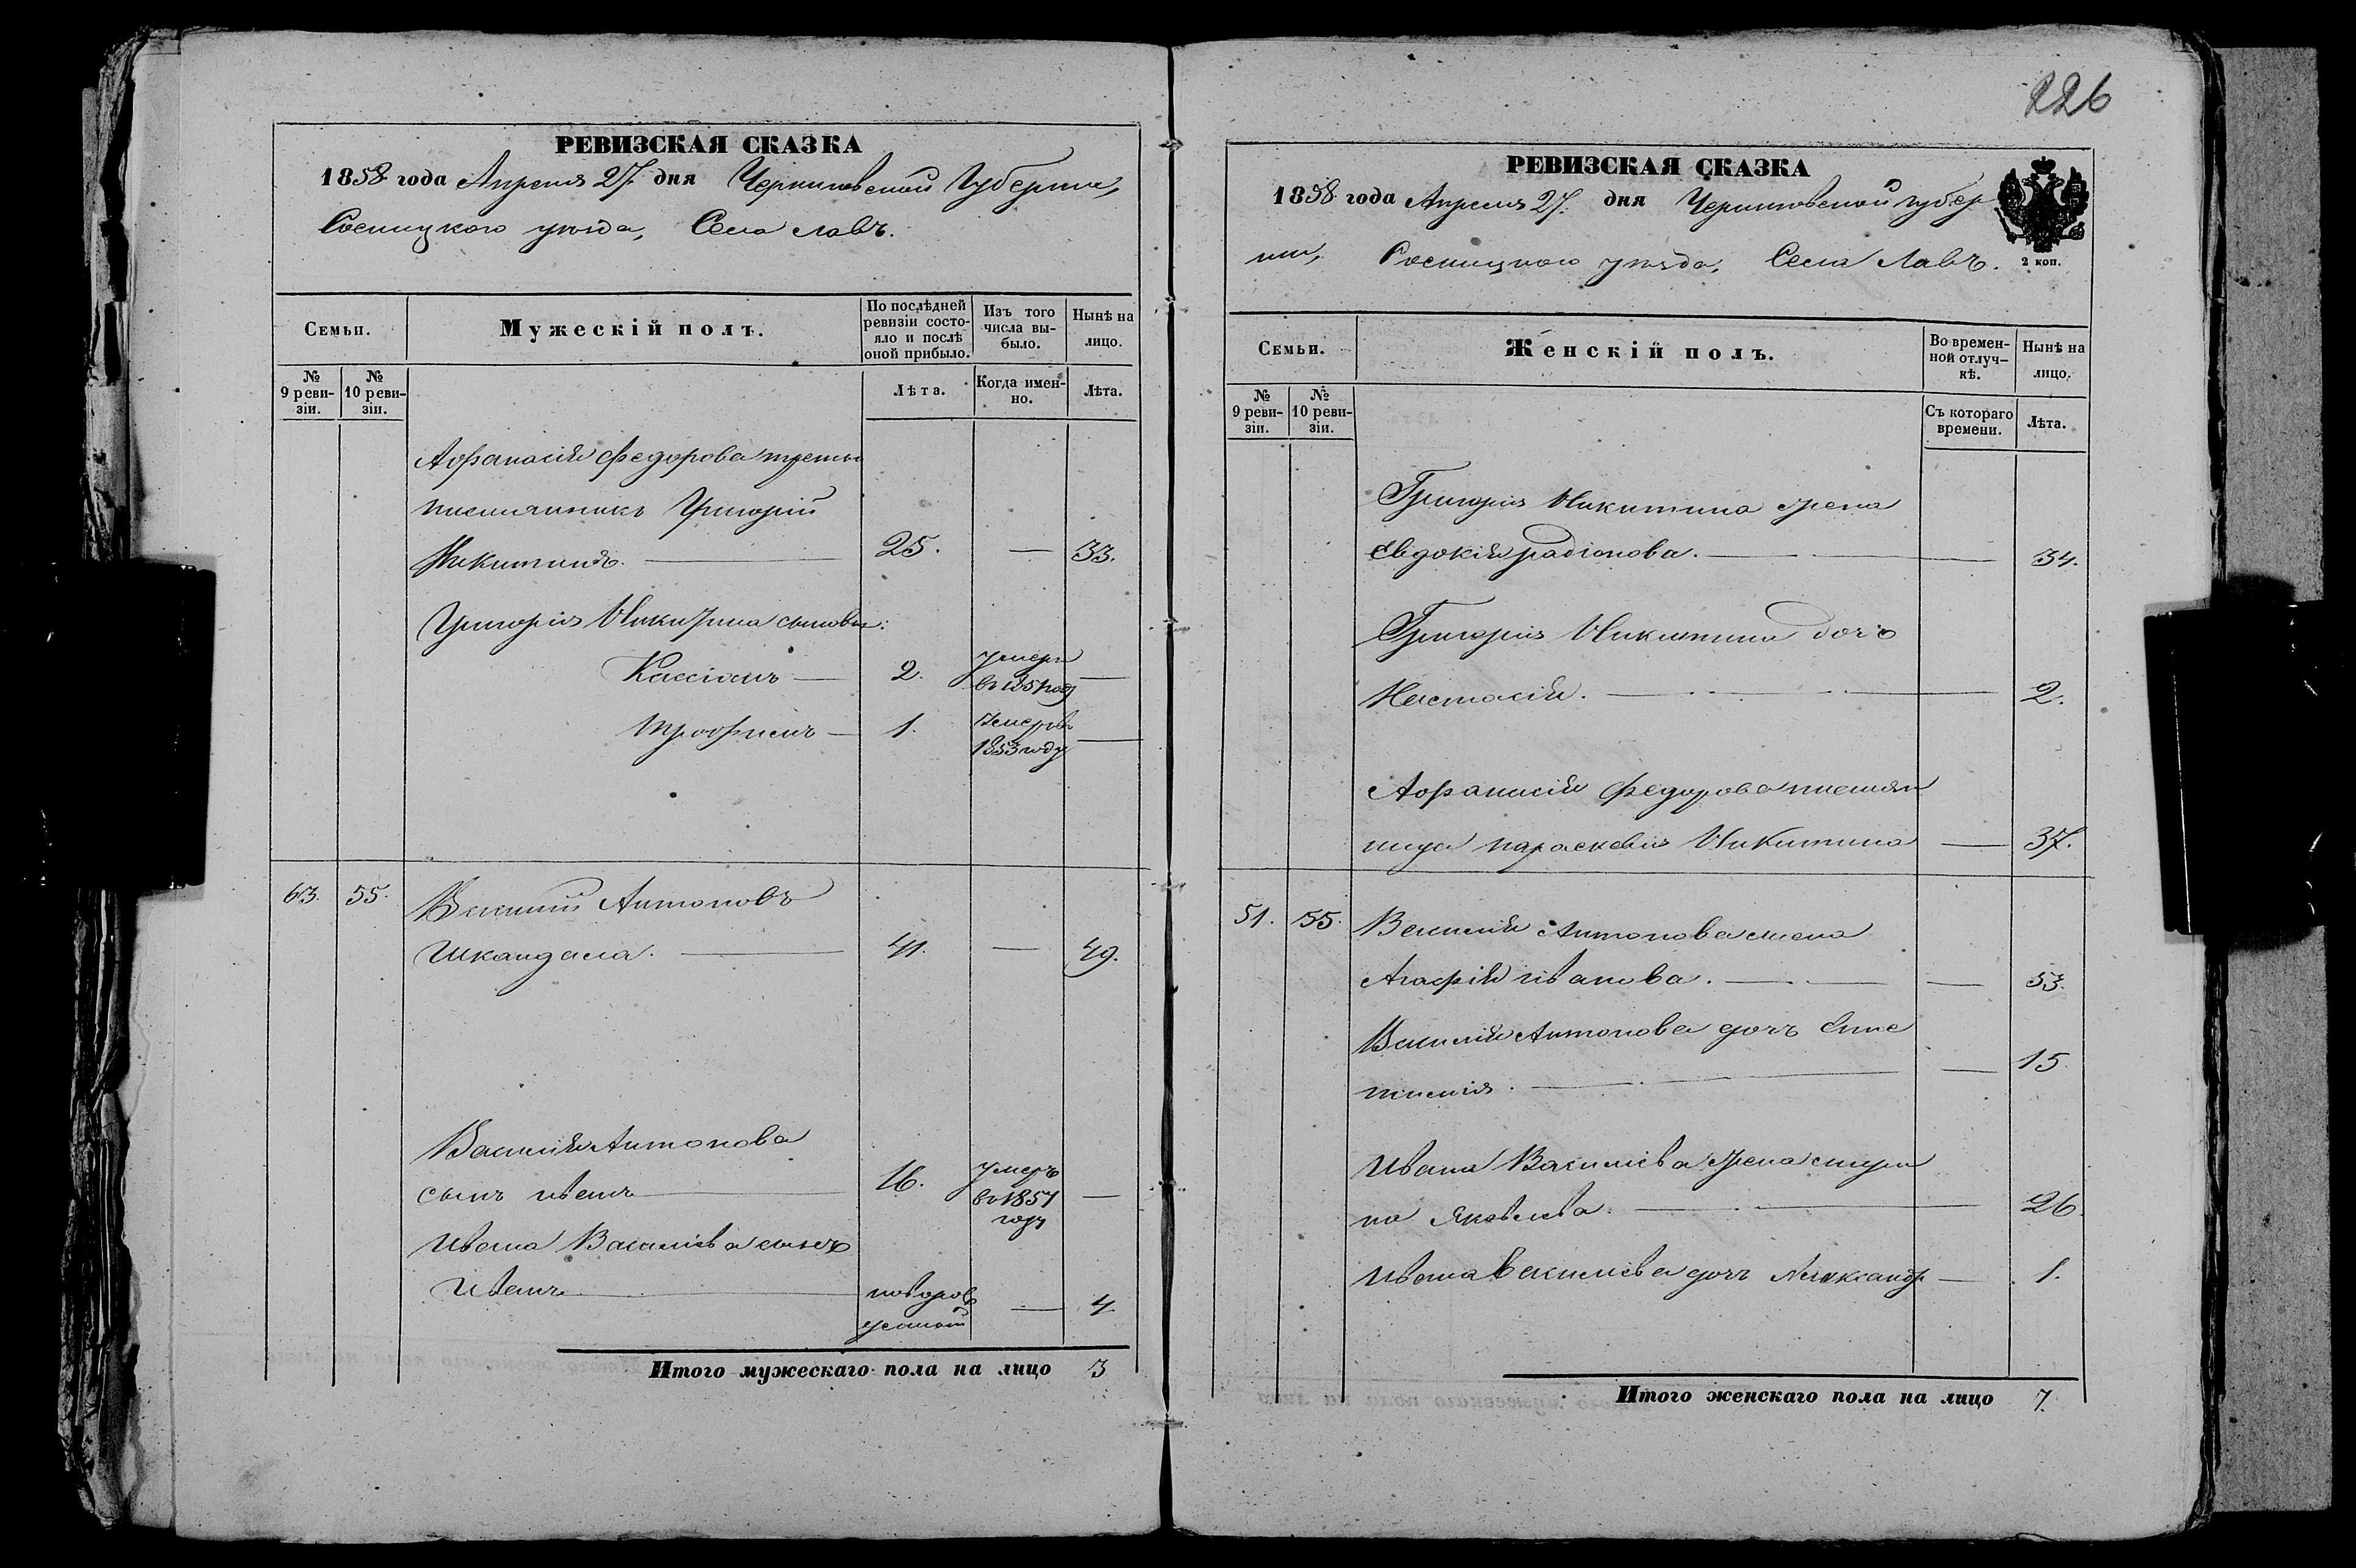 226
РЕВИЗСКАЯ СКАЗКА
1858 года Апреля 27. дня Черниговской Губернии,
Сосницкого уезда, Села Лавъ.
Семьи.
Мужескій полъ.
По послѣдней ревизіи состояло и послѣ оной прибыло.
Изъ того числа выбыло.
Нынѣ на лицо.
№ 9 ревизіи.
№ 10 ревизіи.
Лѣта.
Когда именно.
Лѣта.
Афанасія Федорова третій
племянникъ Григорій
Никитинъ. 25. — 33.
Григорія Никитина сыновья:
Кассіанъ — 2. умеръ въ 1851 году —
Трофимъ — 1. умеръ въ 1853 году —
63. 55. Василий Антоновъ
Шкандала. 41. — 49.
Василія Антонова
сынъ Иванъ 16. умеръ въ 1857 году —
Ивана Василіева сынъ
Иванъ новорожденный — 4
Итого мужескаго пола на лицо 3
РЕВИЗСКАЯ СКАЗКА
1858 года Апреля 27. дня Черниговской губер
нии, Сосницкого уезда, Села Лавъ.
2 коп.
Семьи.
Женскій полъ.
Во временной отлучкѣ.
Нынѣ на лицо.
№ 9 ревизіи.
№ 10 ревизіи.
Съ котораго времени.
Лѣта.
Григорія Никитина жена
Евдокія Радіонова. — 34.
Григорія Никитина дочь
Настасія. — 2.
Афанасія Федорова племян
ница Параскевія Никитина — 37.
51. 55. Василія Антонова жена
Агафія Иванова. — 53.
Василія Антонова дочь Епи
— 15
Ивана Василіева жена
на Яковлева. — 26
Ивана Василіева дочь Александр — 1.
Итого женскаго пола на лицо 7.